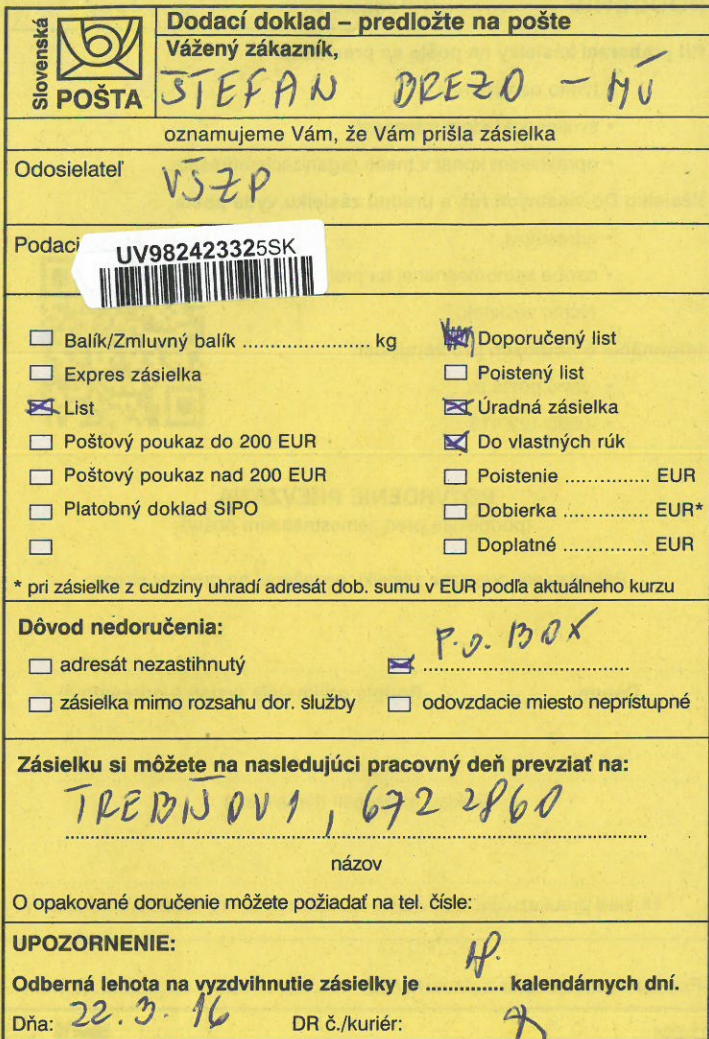 Slovenská
POŠTA
Dodací doklad – predložte na pošte
Vážený zákazník,
ŠTEFAN BREZO – MÚ
oznamujeme Vám, že Vám prišla zásielka
Odosielateľ
VŠZP
Podací
UV982423325SK
Balík/Zmluvný balík ...................... kg
Doporučený list
Expres zásielka
Poistený list
List
Úradná zásielka
Poštový poukaz do 200 EUR
Do vlastných rúk
Poštový poukaz nad 200 EUR
Poistenie ............... EUR
Platobný doklad SIPO
Dobierka ............... EUR*
Doplatné ............... EUR
* pri zásielke z cudziny uhradí adresát dob. sumu v EUR podľa aktuálneho kurzu
Dôvod nedoručenia:
P.O. BOX
adresát nezastihnutý
zásielka mimo rozsahu dor. služby
odovzdacie miesto neprístupné
Zásielku si môžete na nasledujúci pracovný deň prevziať na:
TREBIŠOV 1, 672 2860
názov
O opakované doručenie môžete požiadať na tel. čísle:
UPOZORNENIE:
Odberná lehota na vyzdvihnutie zásielky je ............. kalendárnych dní.
Dňa: 22. 3. 16
DR č./kuriér: